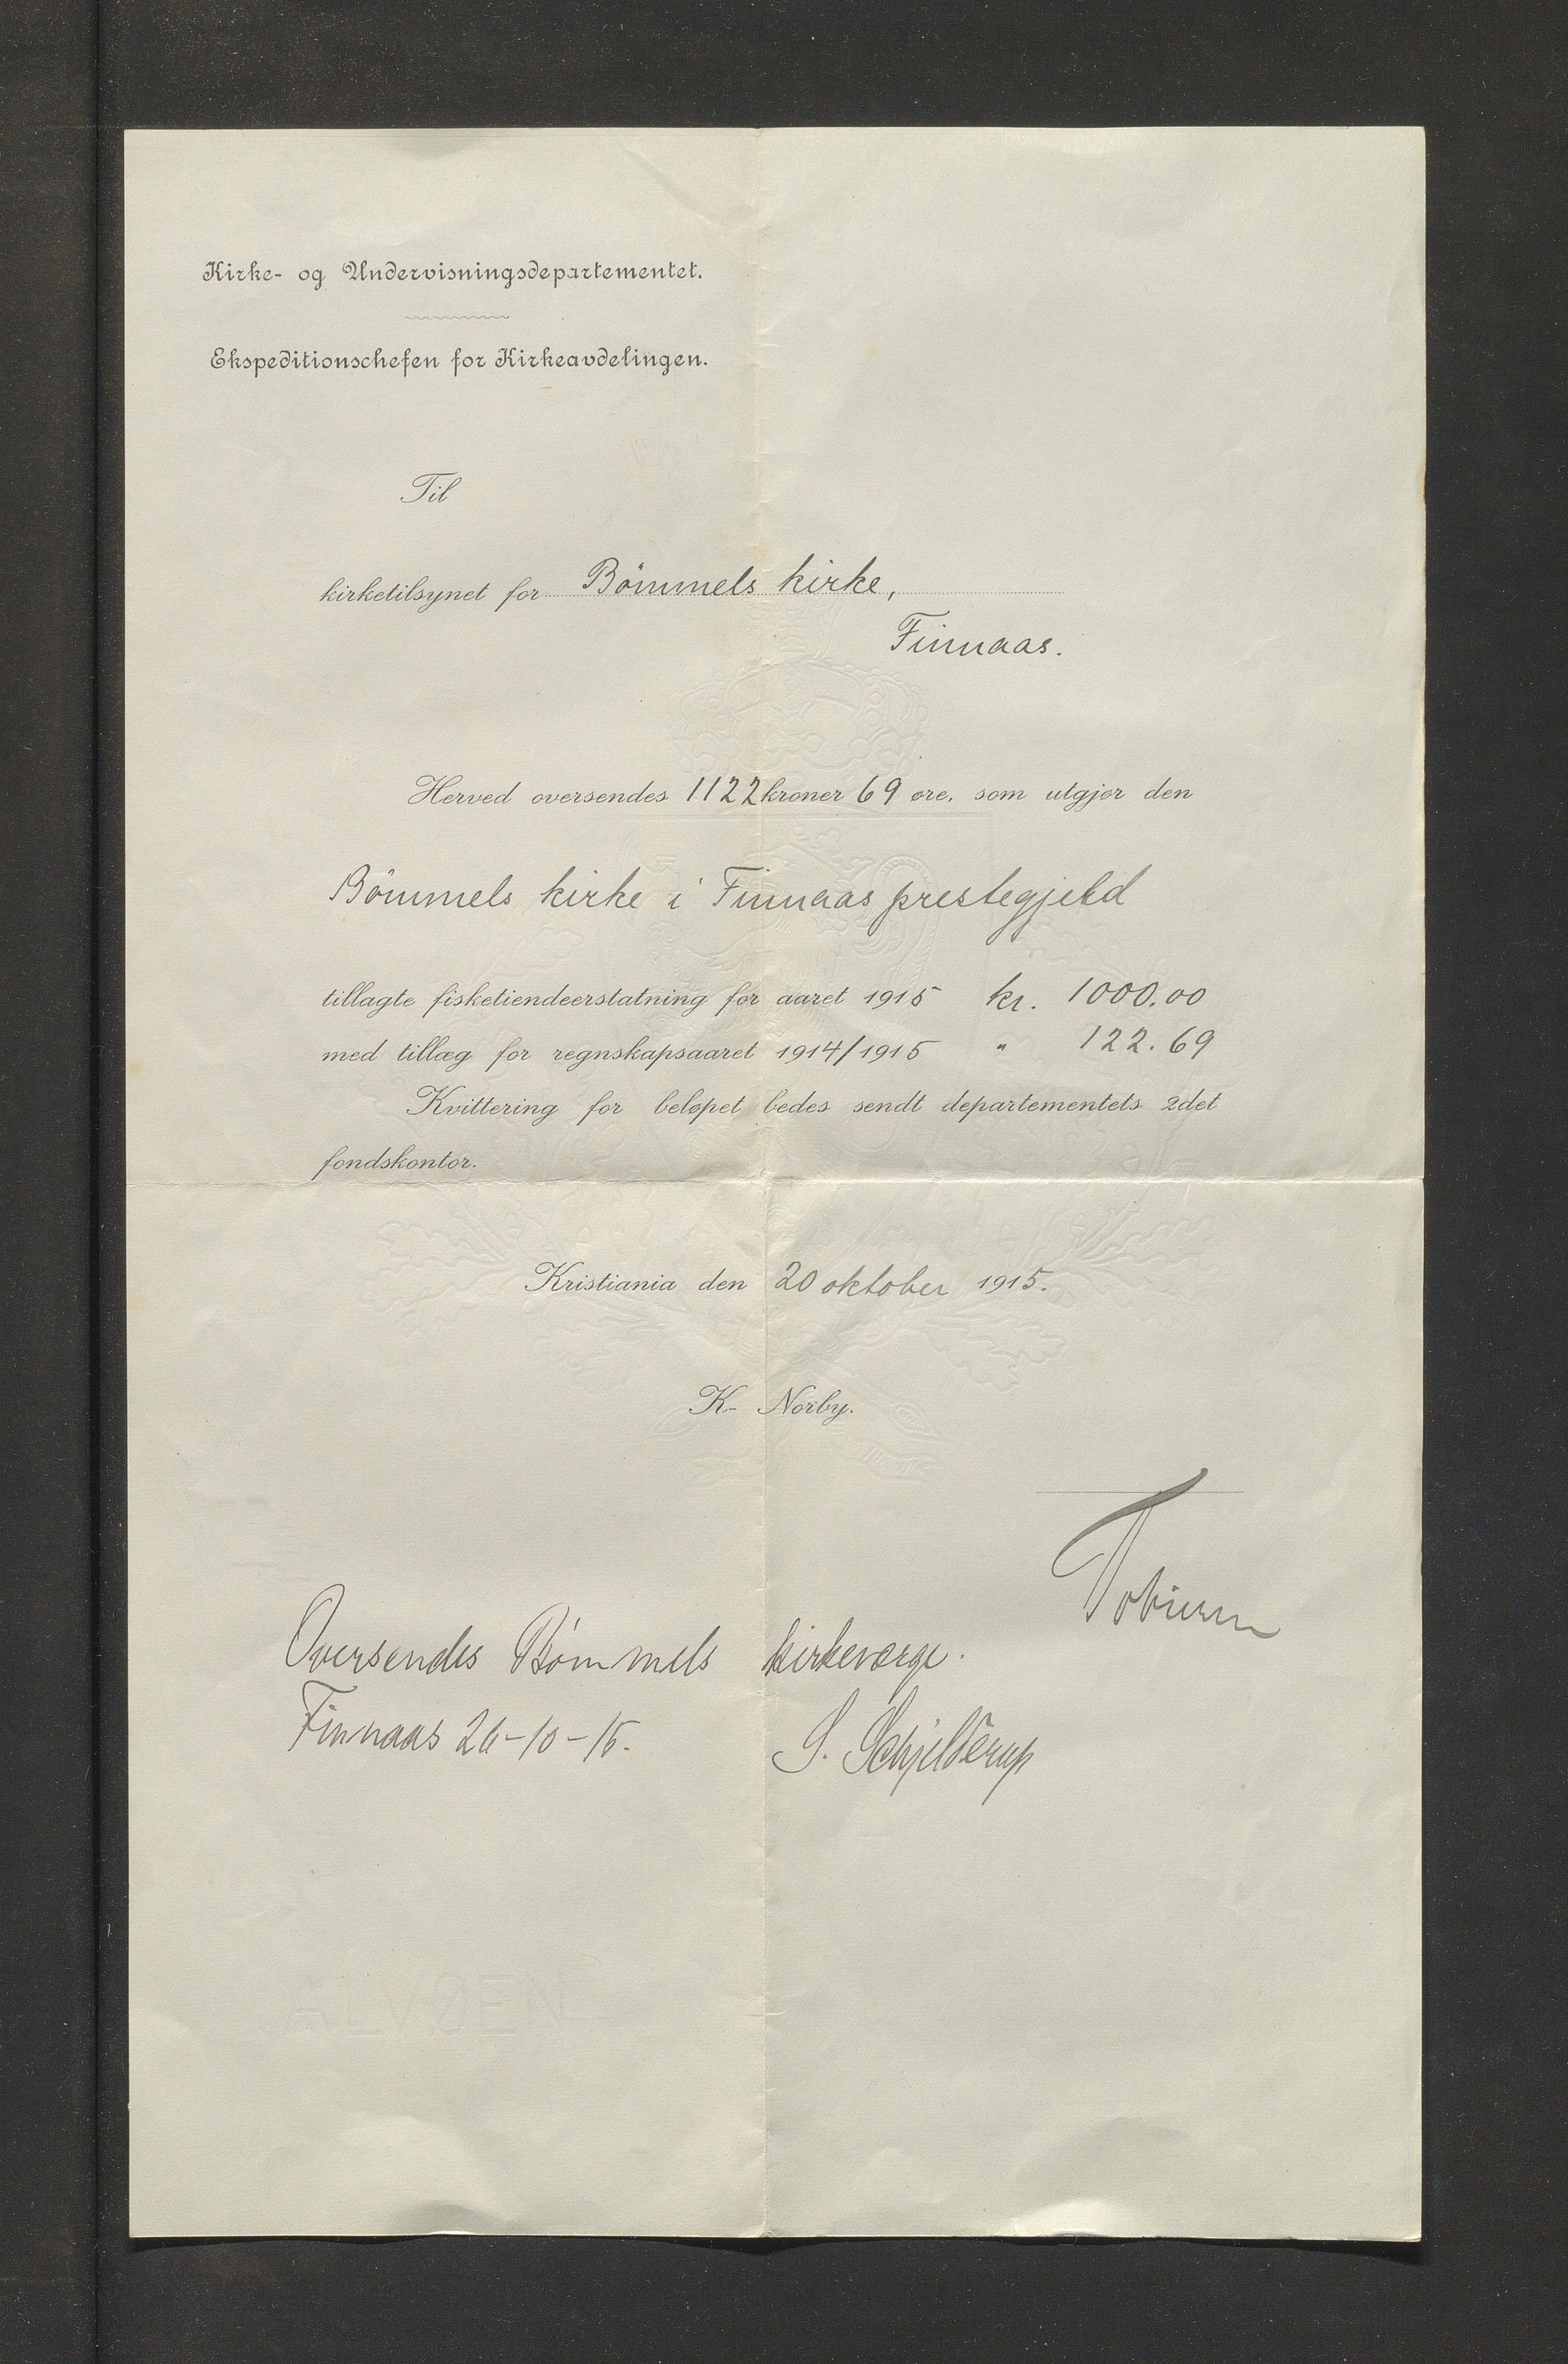 Kirke- og Undervisningsdepartementet.
Ekspeditionschefen for Kirkeavdelingen.
Til
kirketilsynet for Bömmels kirke,
Finnaas.
Herved oversendes 1122 kroner 69 øre, som utgjør den
Bömmels kirke i Finnaas prestegjeld
tillagte fisketiendeerstatning for aaret 1915 kr. 1000.00
med tillæg for regnskapsaaret 1914/1915 " 122.69
Kvittering for beløpet bedes sendt departementets 2det
fondskontor.
Kristiania den 20 oktober 1915.
K. Norby.
Oversendes Bømmels kirkeværge.
Finnaas 26-10-15.
S. Schjelderup
ALVØEN